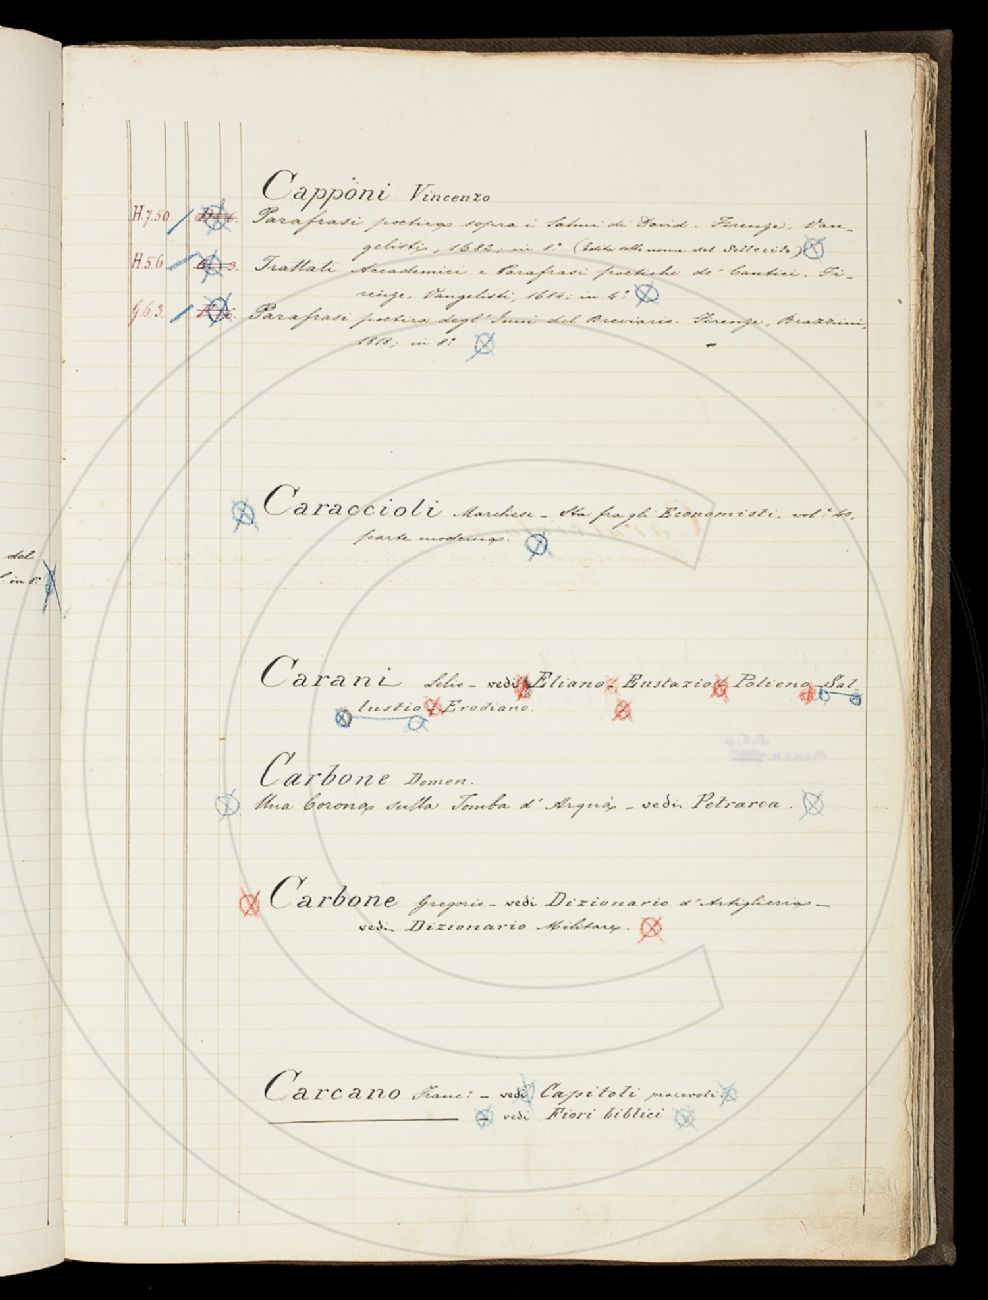 Cappóni Vincenzo
H.7.50 Parafrasi poetica sopra i Salmi di David. Firenze, Van-
gelisti, 1682; in 8.° (Edito alle nome del Sollecito)
H.5.6 3. Trattati Accademici e Parafrasi poetiche de' Cantici. Fi-
renze, Vangelisti, 1684; in 4.°
G.6.3. Parafrasi poetica degl' Inni del Breviario. Firenze, Brazzini,
1818; in 8.°
Caraccioli Marchese – Sta fra gli Economisti. vol.° 40,
parte moderna.
del
in 8.°
Carani Lelio – vedi Eliano – Eustazio – Polieno – Sal
lustio – Erodiano.
Carbone Domen.
Una Corona sulla Tomba d' Arquà – vedi Petrarca.
Carbone Gregorio – vedi Dizionario d' Artiglieria –
vedi Dizionario Militare.
Carcano Franc: – vedi Capitoli piacevoli
– vedi Fiori biblici